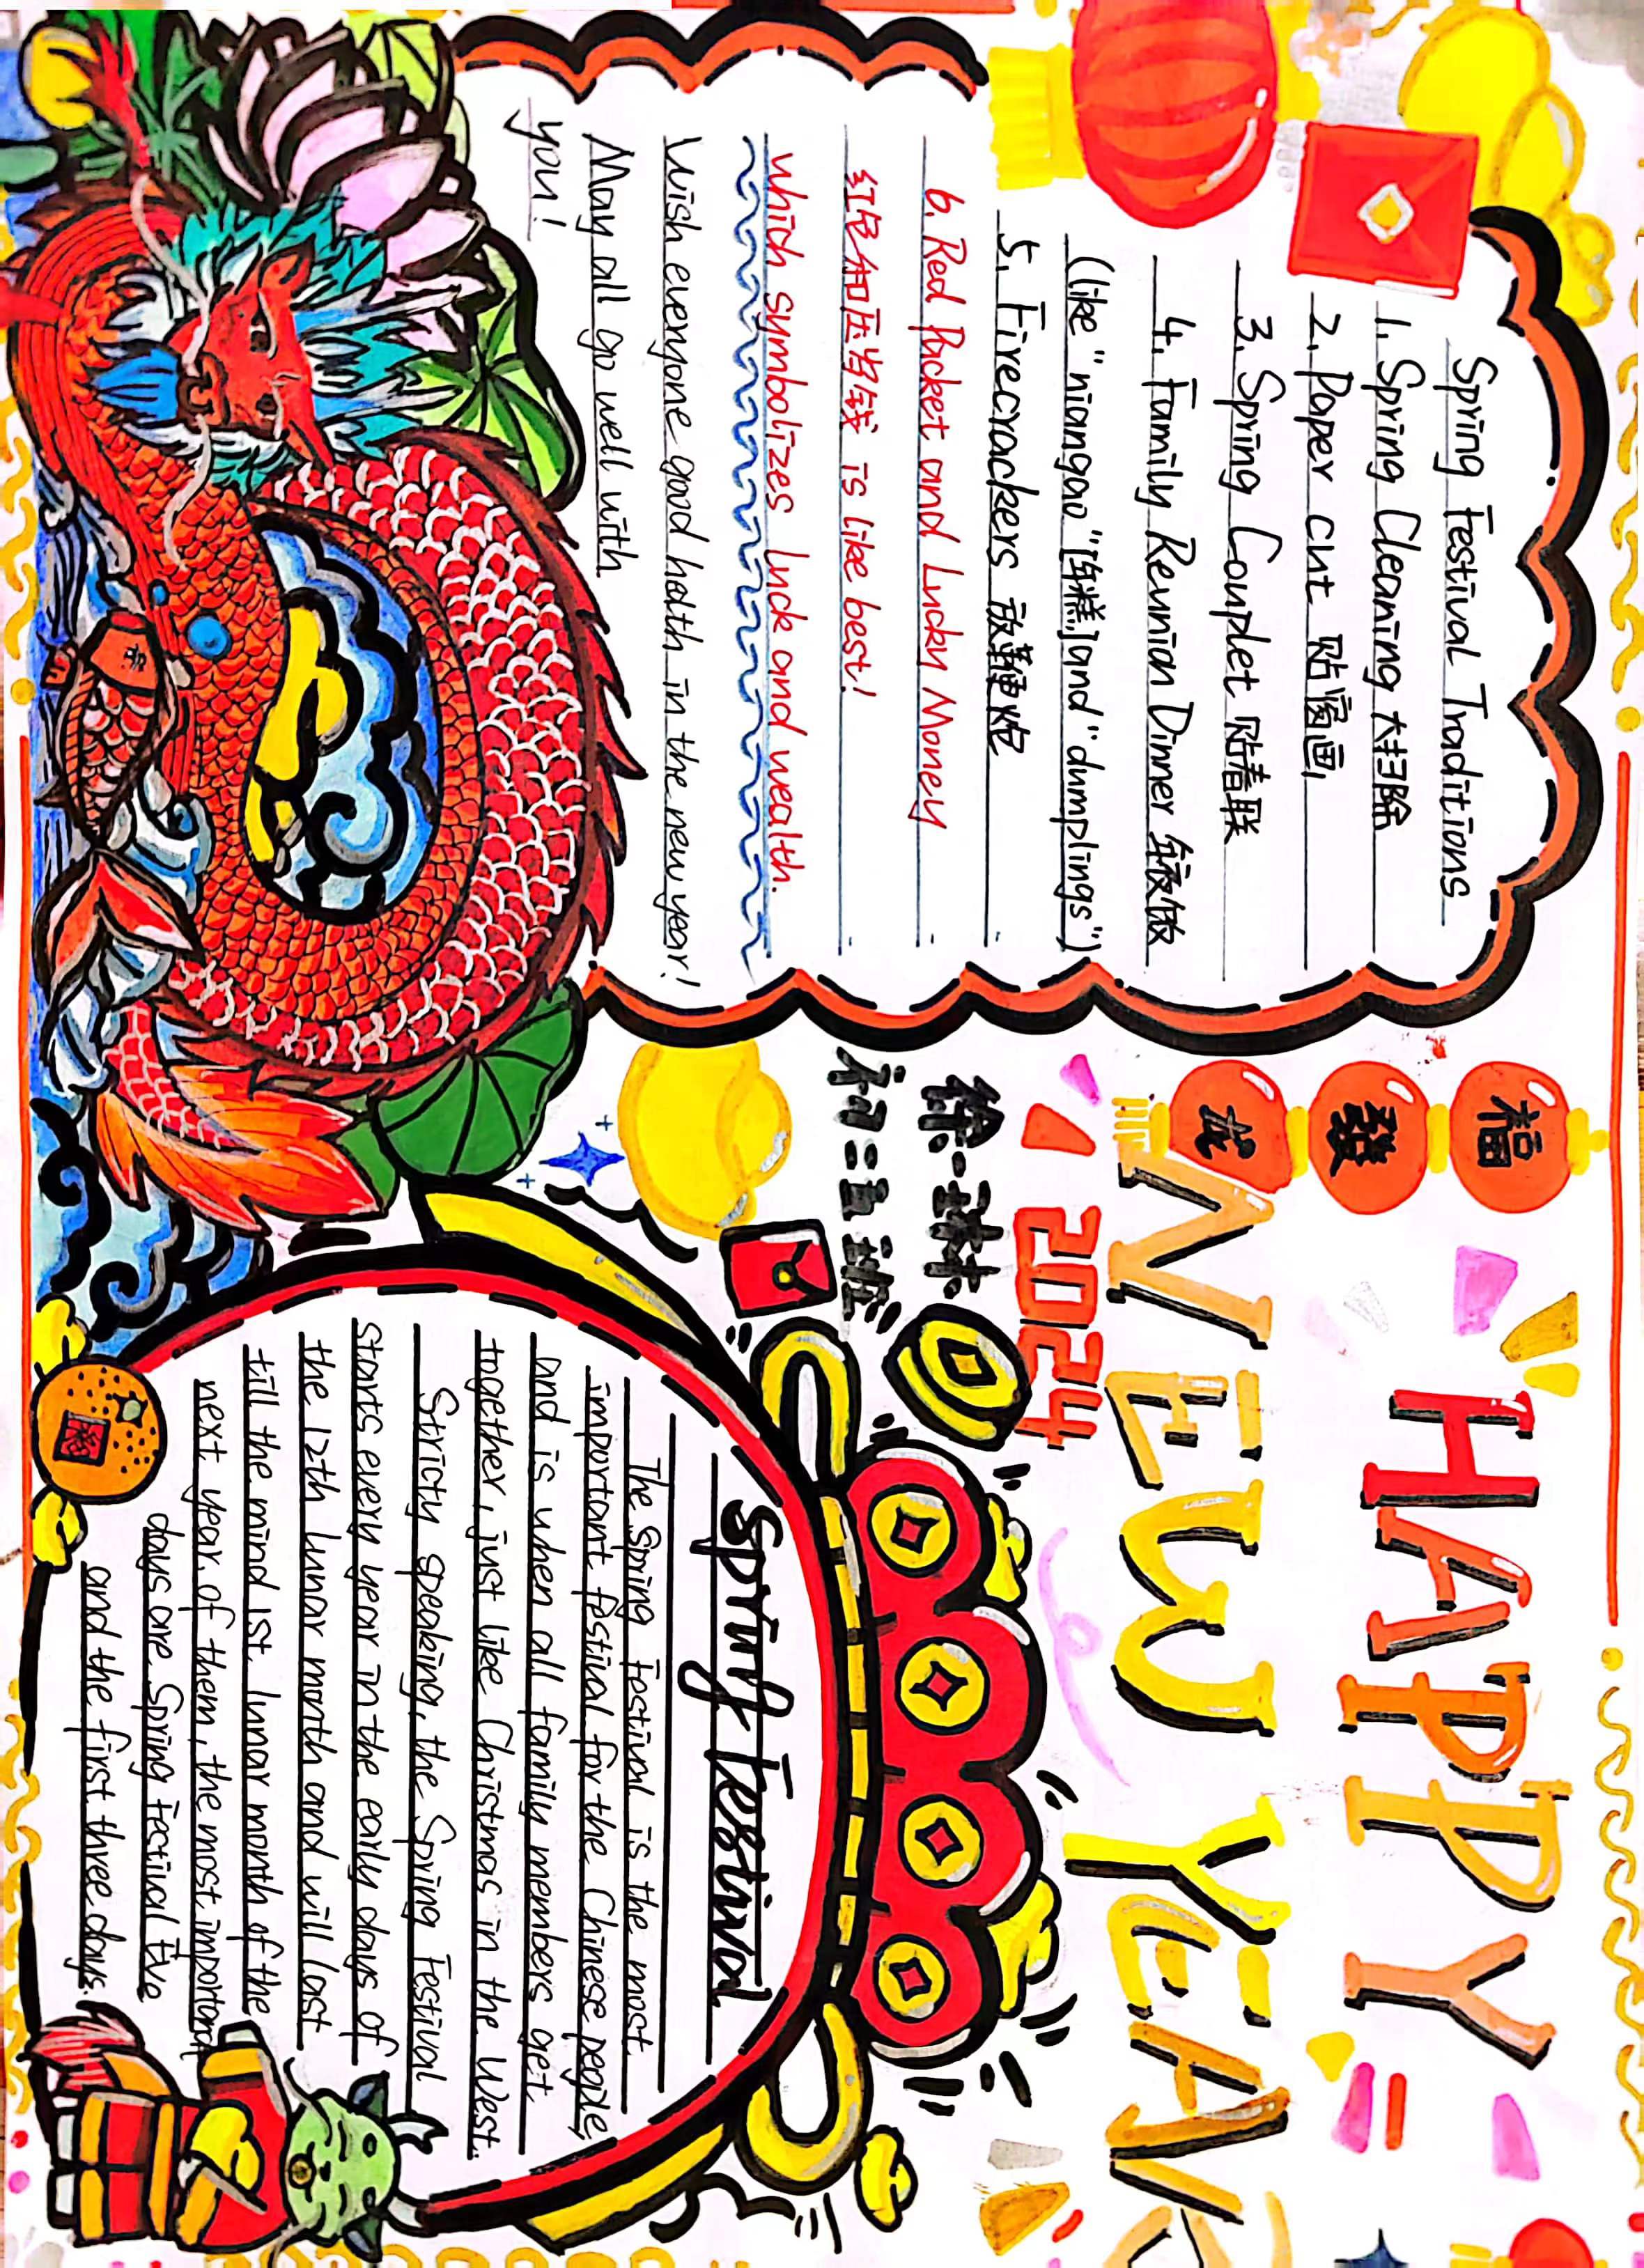 HAPPY
NEW YEAR
2024
福
發
龙
徐一琳
初二五班
Spring Festival Traditions
1. Spring Cleaning 大扫除
2. Paper cut 贴窗画
3. Spring Couplet 贴春联
4. Family Reunian Dinner 年夜饭
(like "niangao"[年糕]and "dumplings")
5. Firecrackers 放鞭炮
6. Red Packet and Lucky Money
红包和压岁钱 is like best!
which symbolizes luck and wealth.
Wish everyone good health in the new year!
May all go well with
you!
Spring Festival
The Spring Festival is the most
important festival for the Chinese people,
and is when all family members get
together, just like Christmas in the West.
Stricty speaking, the Spring Festival
starts every year in the early days of
the 12th lunar month and will last
till the mind 1st lunar month of the
next year. of them, the most important
days are Spring Festival Eve
and the first three days.